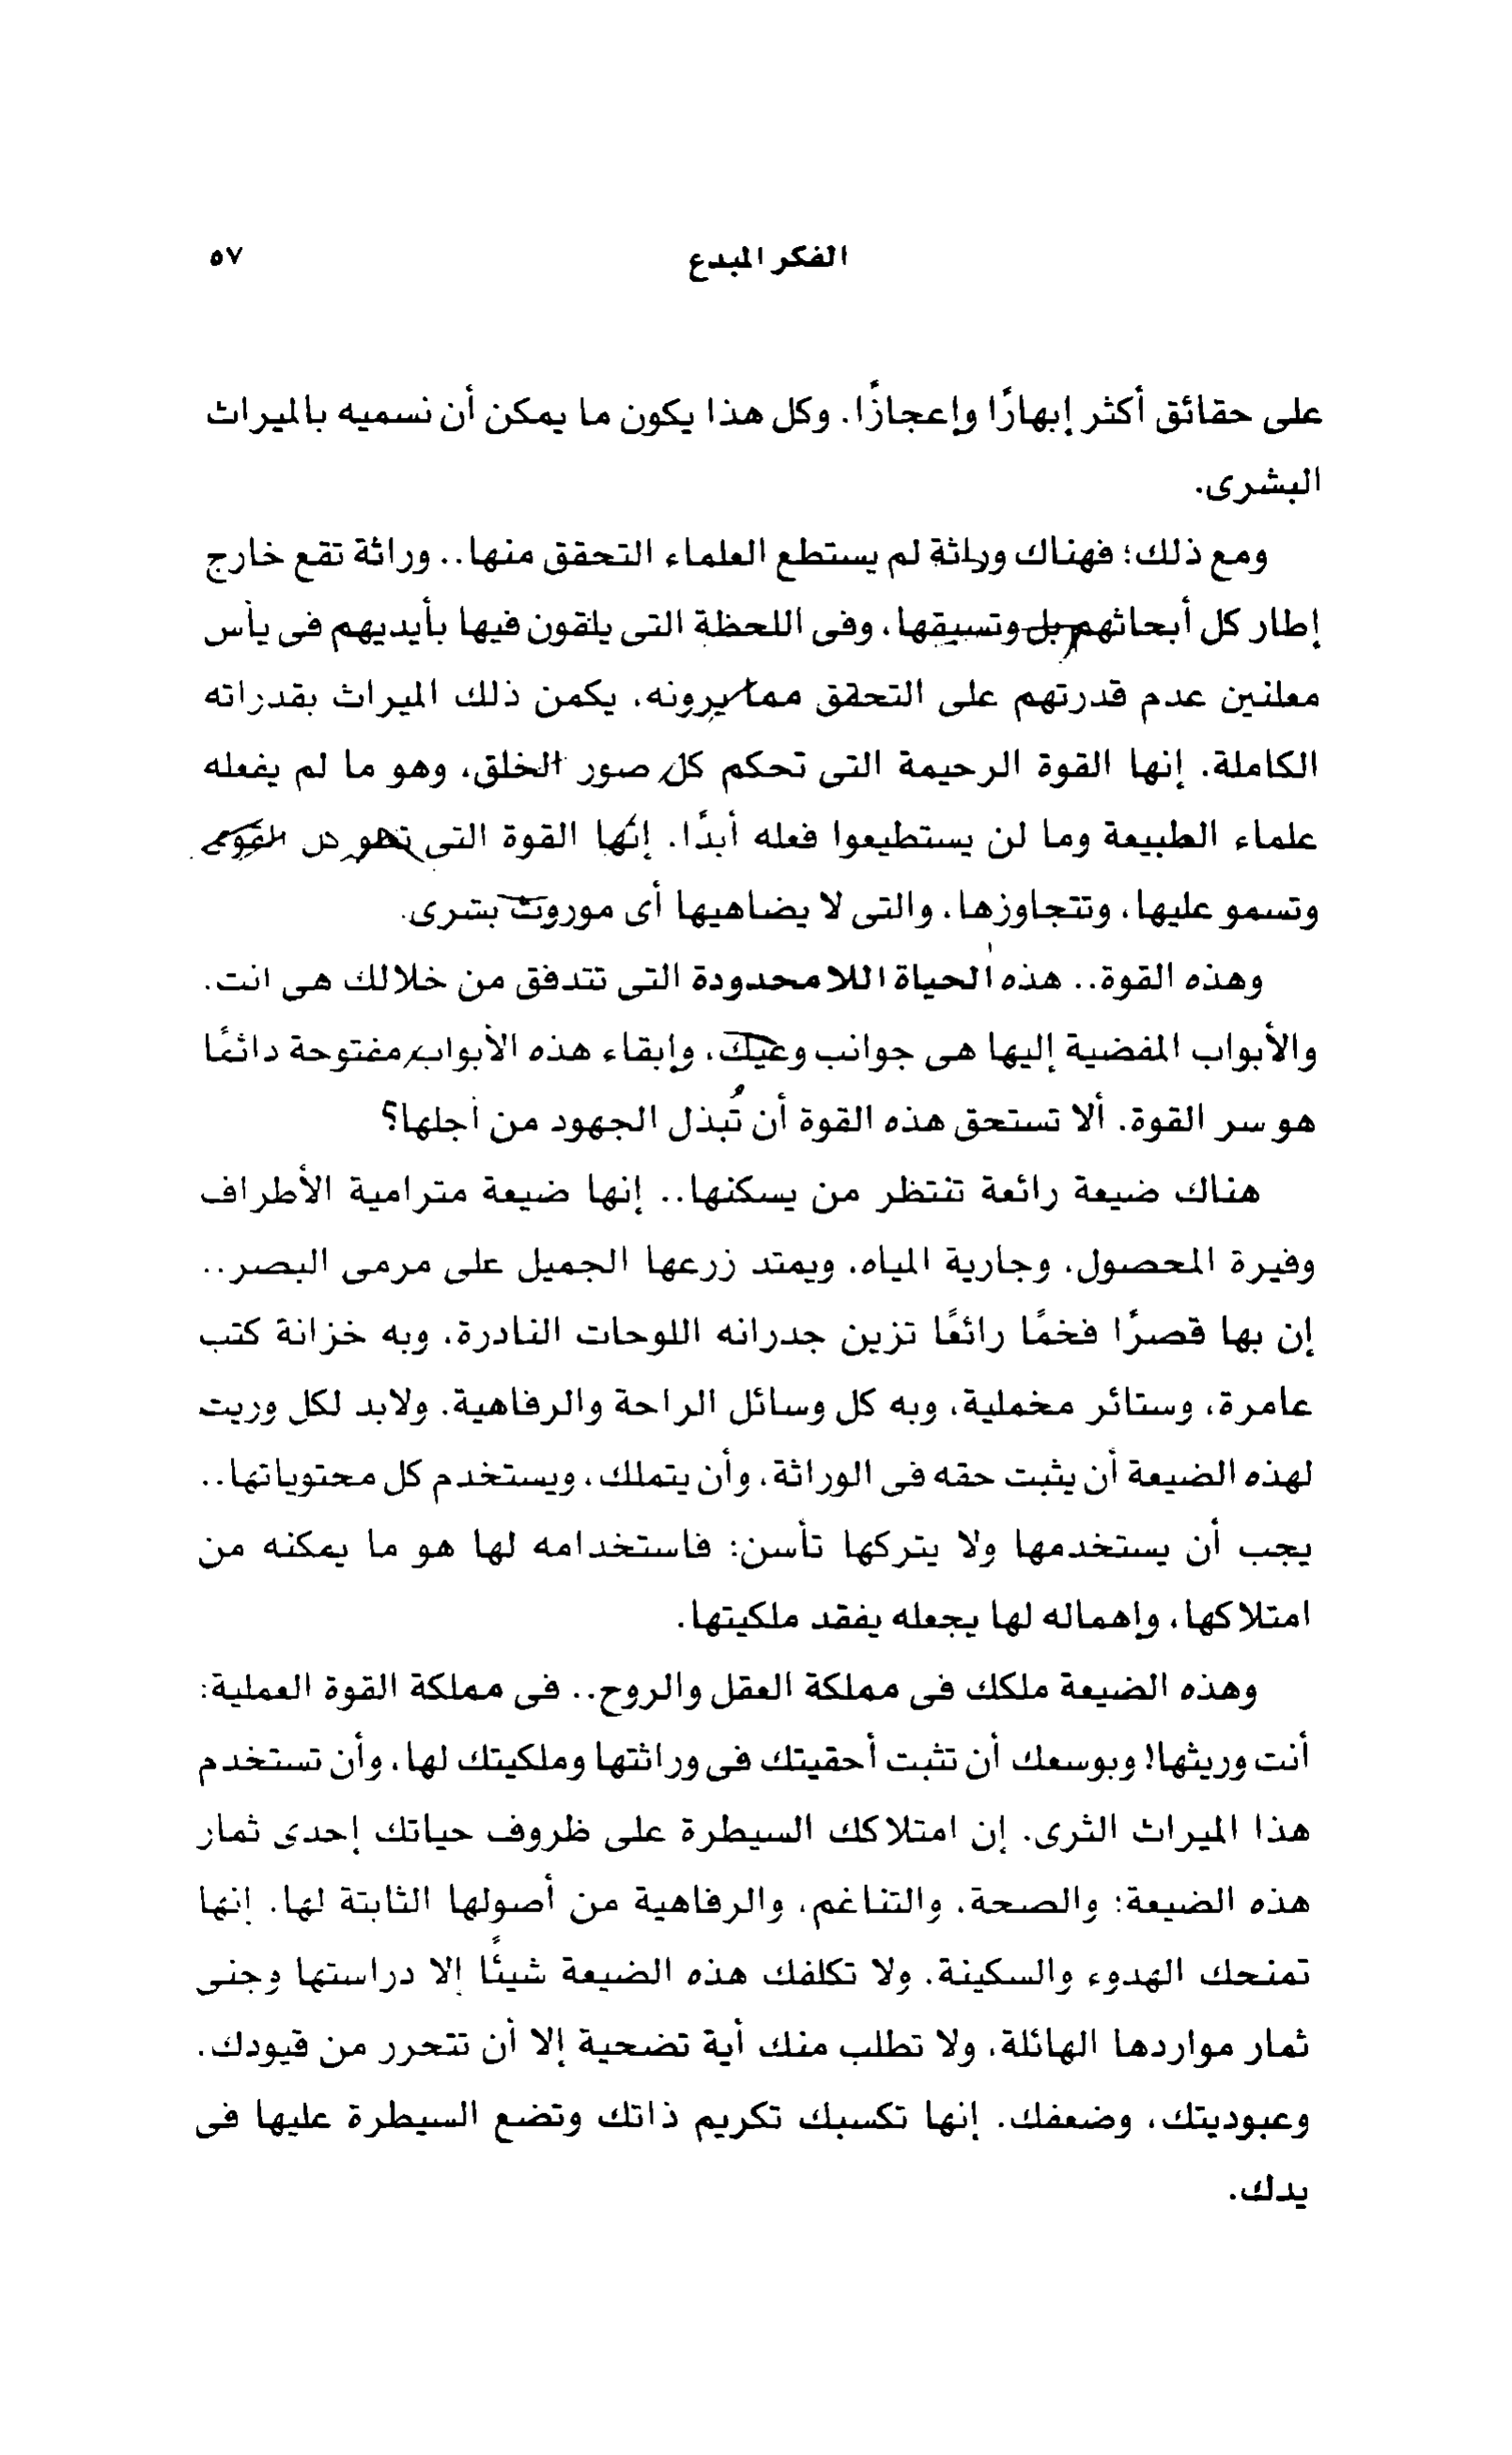 الفكر المبدع ٥٧
على حقائق أكثر إبهارًا وإعجازًا. وكل هذا يكون ما يمكن أن نسميه بالميراث
البشرى.
ومع ذلك؛ فهناك وراثة لم يستطع العلماء التحقق منها.. وراثة تقع خارج
إطار كل أبحاثهم بل وتسبقها، وفى اللحظة التى يلقون فيها بأيديهم فى يأس
معلنين عدم قدرتهم على التحقق مما يرونه، يكمن ذلك الميراث بقدراته
الكاملة. إنها القوة الرحيمة التى تحكم كل صور الخلق، وهو ما لم يفعله
علماء الطبيعة وما لن يستطيعوا فعله أبدًا. إنها القوة التى القوى
وتسمو عليها، وتتجاوزها، والتى لا يضاهيها أى موروث بشرى.
وهذه القوة.. هذه الحياة اللا محدودة التى تتدفق من خلالك هى انت.
والأبواب المفضية إليها هى جوانب وعيك، وإبقاء هذه الأبواب مفتوحة دائمًا
هو سر القوة. ألا تستحق هذه القوة أن تُبذل الجهود من أجلها؟
هناك ضيعة رائعة تنتظر من يسكنها.. إنها ضيعة مترامية الأطراف
وفيرة المحصول، وجارية المياه، ويمتد زرعها الجميل على مرمى البصر..
إن بها قصرًا فخمًا رائعًا تزين جدرانه اللوحات النادرة، وبه خزانة كتب
عامرة، وستائر مخملية، وبه كل وسائل الراحة والرفاهية. ولابد لكل وريث
لهذه الضيعة أن يثبت حقه فى الوراثة، وأن يتملك، ويستخدم كل محتوياتها..
يجب أن يستخدمها ولا يتركها تأسن: فاستخدامه لها هو ما يمكنه من
امتلاكها، وإهماله لها يجعله يفقد ملكيتها.
وهذه الضيعة ملكك فى مملكة العقل والروح.. فى مملكة القوة العملية:
أنت وريثها! وبوسعك أن تثبت أحقيتك فى وراثتها وملكيتك لها، وأن تستخدم
هذا الميراث الثرى. إن امتلاكك السيطرة على ظروف حياتك إحدى ثمار
هذه الضيعة: والصحة، والتناغم، والرفاهية من أصولها الثابتة لها. إنها
تمنحك الهدوء والسكينة. ولا تكلفك هذه الضيعة شيئًا إلا دراستها وجنى
ثمار مواردها الهائلة، ولا تطلب منك أية تضحية إلا أن تتحرر من قيودك.
وعبوديتك، وضعفك. إنها تكسبك تكريم ذاتك وتضع السيطرة عليها فى
يدك.